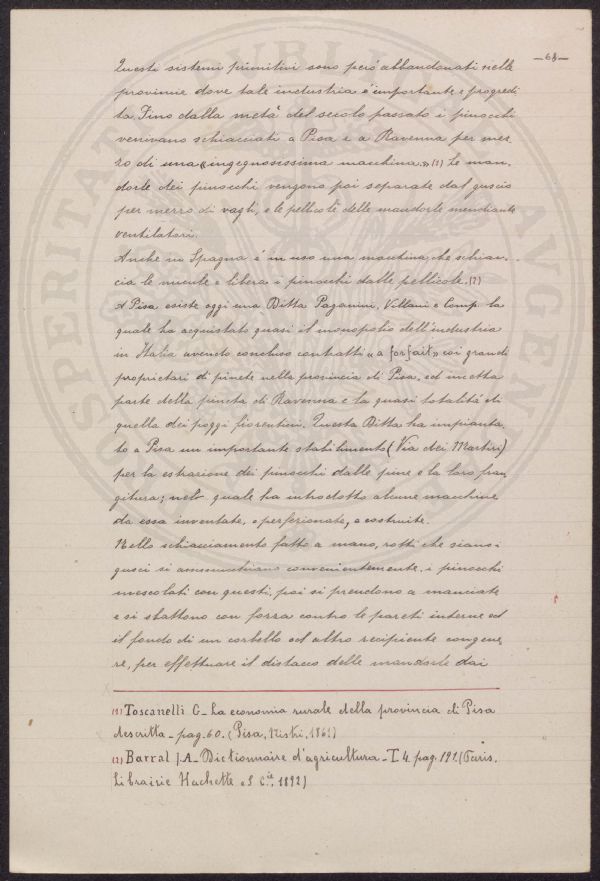 —68—
Questi sistemi primitivi sono però abbandonati nelle
provincie dove tale industria è importante e progredi
ta. Fino dalla metà del secolo passato i pinocchi
venivano schiacciati a Pisa e a Ravenna per mez
zo di una «ingegnosissima macchina.» (1) Le man.
dorle dei pinocchi vengono poi separate dal guscio
per mezzo di vagli, e le pellicole delle mandorle mendiante
ventilatori.
Anche in Spagna è in uso una macchina che schiac.
cia le nucule e libera i pinocchi dalle pellicole. (2)
A Pisa esiste oggi una Ditta Paganini, Villani e Comp. la
quale ha acquistato quasi il monopolio dell'industria
in Italia avendo concluso contratti «a forfait» coi grandi
proprietari di pinete nella provincia di Pisa, ed in
parte della pineta di Ravenna e la quasi totalità di
quella dei poggi fiorentini. Questa Ditta ha impianta
to a Pisa un importante stabilimento (Via dei Martiri)
per la estrazione dei pinocchi dalle pine e la loro fran
gitura; nel quale ha introdotto alcune macchine
da essa inventate, e perfezionate, e costruite.
Nello schiacciamento fatto a mano, rotti che siano i
gusci si ammucchiano convenientemente i pinocchi
mescolati con questi, poi si prendono a manciate
e si sbattono con forza contro le pareti interne ed
il fondo di un corbello od altro recipiente congene
re, per effettuare il distacco delle mandorle dai
(1) Toscanelli G_ La economia rurale della provincia di Pisa
descritta_ pag. 60. (Pisa, Nistri, 1861)
(2) Barral J.A_ Dictionnaire d'agricultura_ T. 4. pag. 191. (Paris.
Librairie Hachette e S C.ie, 1892)
PROSPERITATI PUBLICAE AVGENDAE